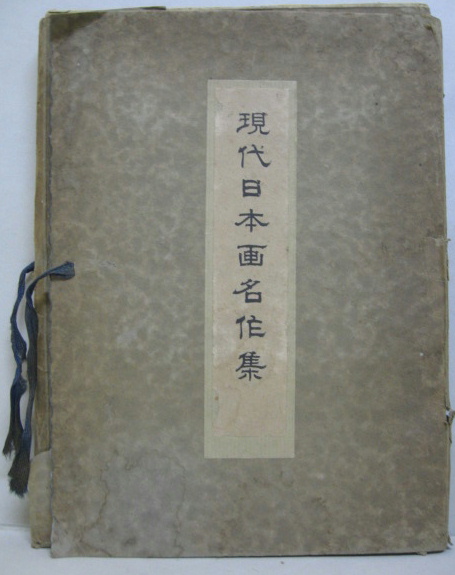 現代日本画名作集